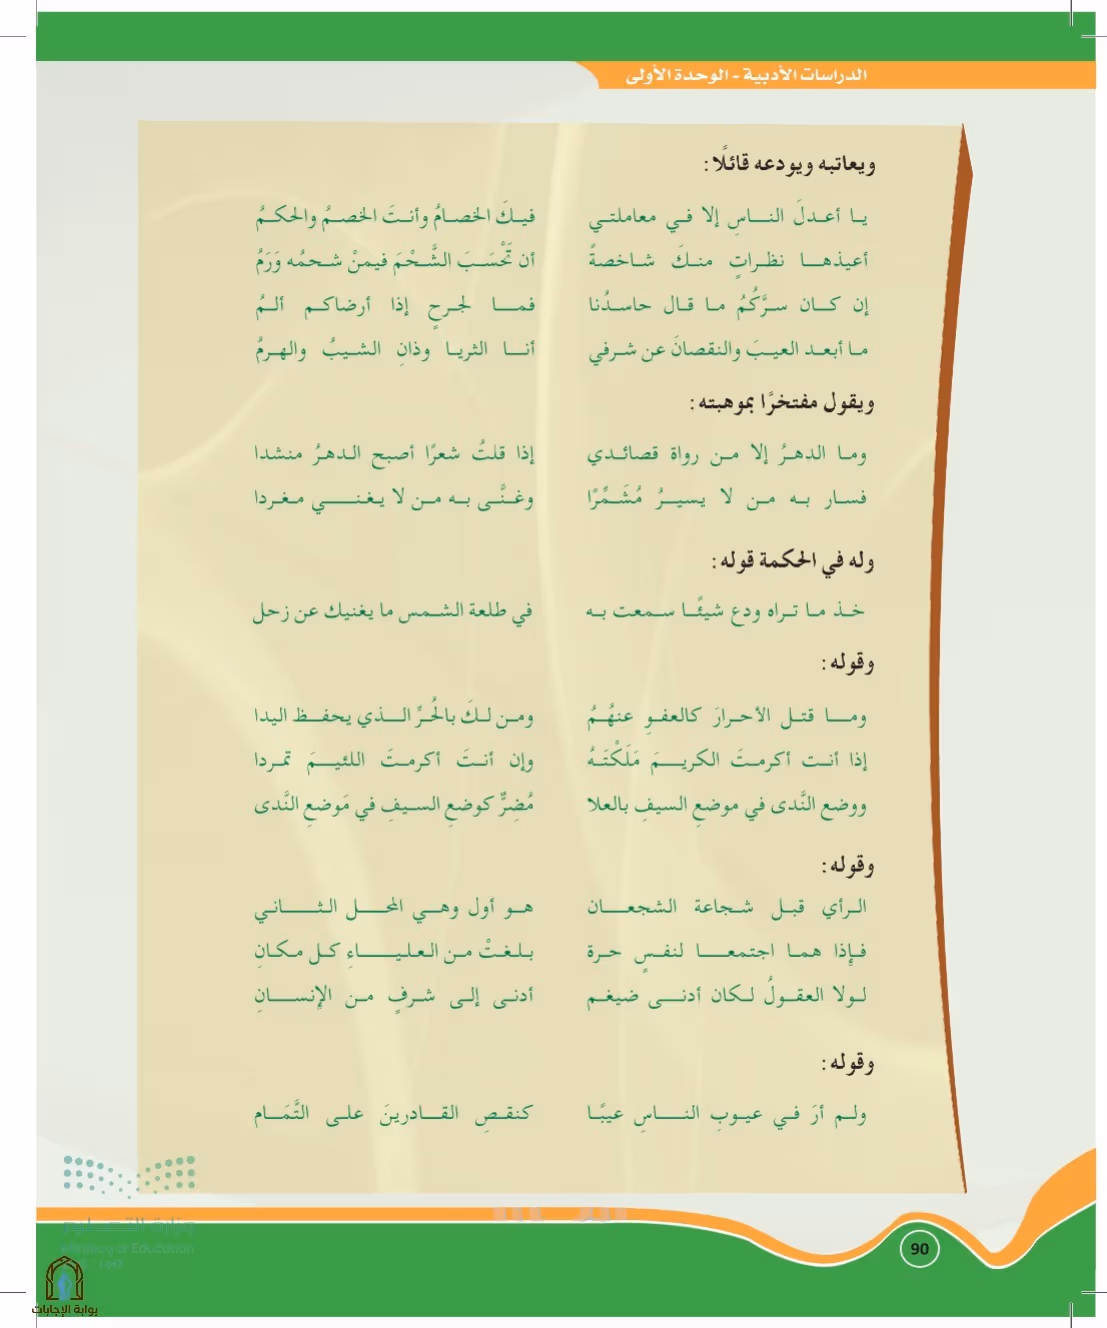 الدراسات الأدبية - الوحدة الأولى
ويعاتبه ويودعه قائلًا:
يا أعدلَ الناسِ إلا في معاملتي فيكَ الخصامُ وأنتَ الخصمُ والحكمُ
أعيذها نظراتٍ منكَ شاخصةً أن تَحْسَبَ الشَّحْمَ فيمنْ شحمُه وَرَمُ
إن كان سرَّكُمُ ما قال حاسدُنا فما لجرحٍ إذا أرضاكم ألمُ
ما أبعد العيبَ والنقصانَ عن شرفي أنا الثريا وذانِ الشيبُ والهرمُ
ويقول مفتخرًا بموهبته:
وما الدهرُ إلا من رواة قصائدي إذا قلتُ شعرًا أصبح الدهرُ منشدا
فسار به من لا يسيرُ مُشَمِّرًا وغنَّى به من لا يغني مغردا
وله في الحكمة قوله:
خذ ما تراه ودع شيئًا سمعت به في طلعة الشمس ما يغنيك عن زحل
وقوله:
وما قتل الأحرارَ كالعفوِ عنهُمُ ومن لكَ بالحُرِّ الذي يحفظ اليدا
إذا أنت أكرمتَ الكريمَ مَلَكْتَهُ وإن أنتَ أكرمتَ اللئيمَ تمردا
ووضع النَّدى في موضعِ السيفِ بالعلا مُضِرٌّ كوضعِ السيفِ في مَوضعِ النَّدى
وقوله:
الرأي قبل شجاعة الشجعان هو أول وهي المحل الثاني
فإذا هما اجتمعا لنفسٍ حرة بلغتْ من العلياءِ كل مكانِ
لولا العقولُ لكان أدنى ضيغم أدنى إلى شرفٍ من الإنسانِ
وقوله:
ولم أرَ في عيوبِ الناسِ عيبًا كنقصِ القادرينَ على التَّمَام
وزارة التعليم
Ministry of Education
1447
90
بوابة الإجابات